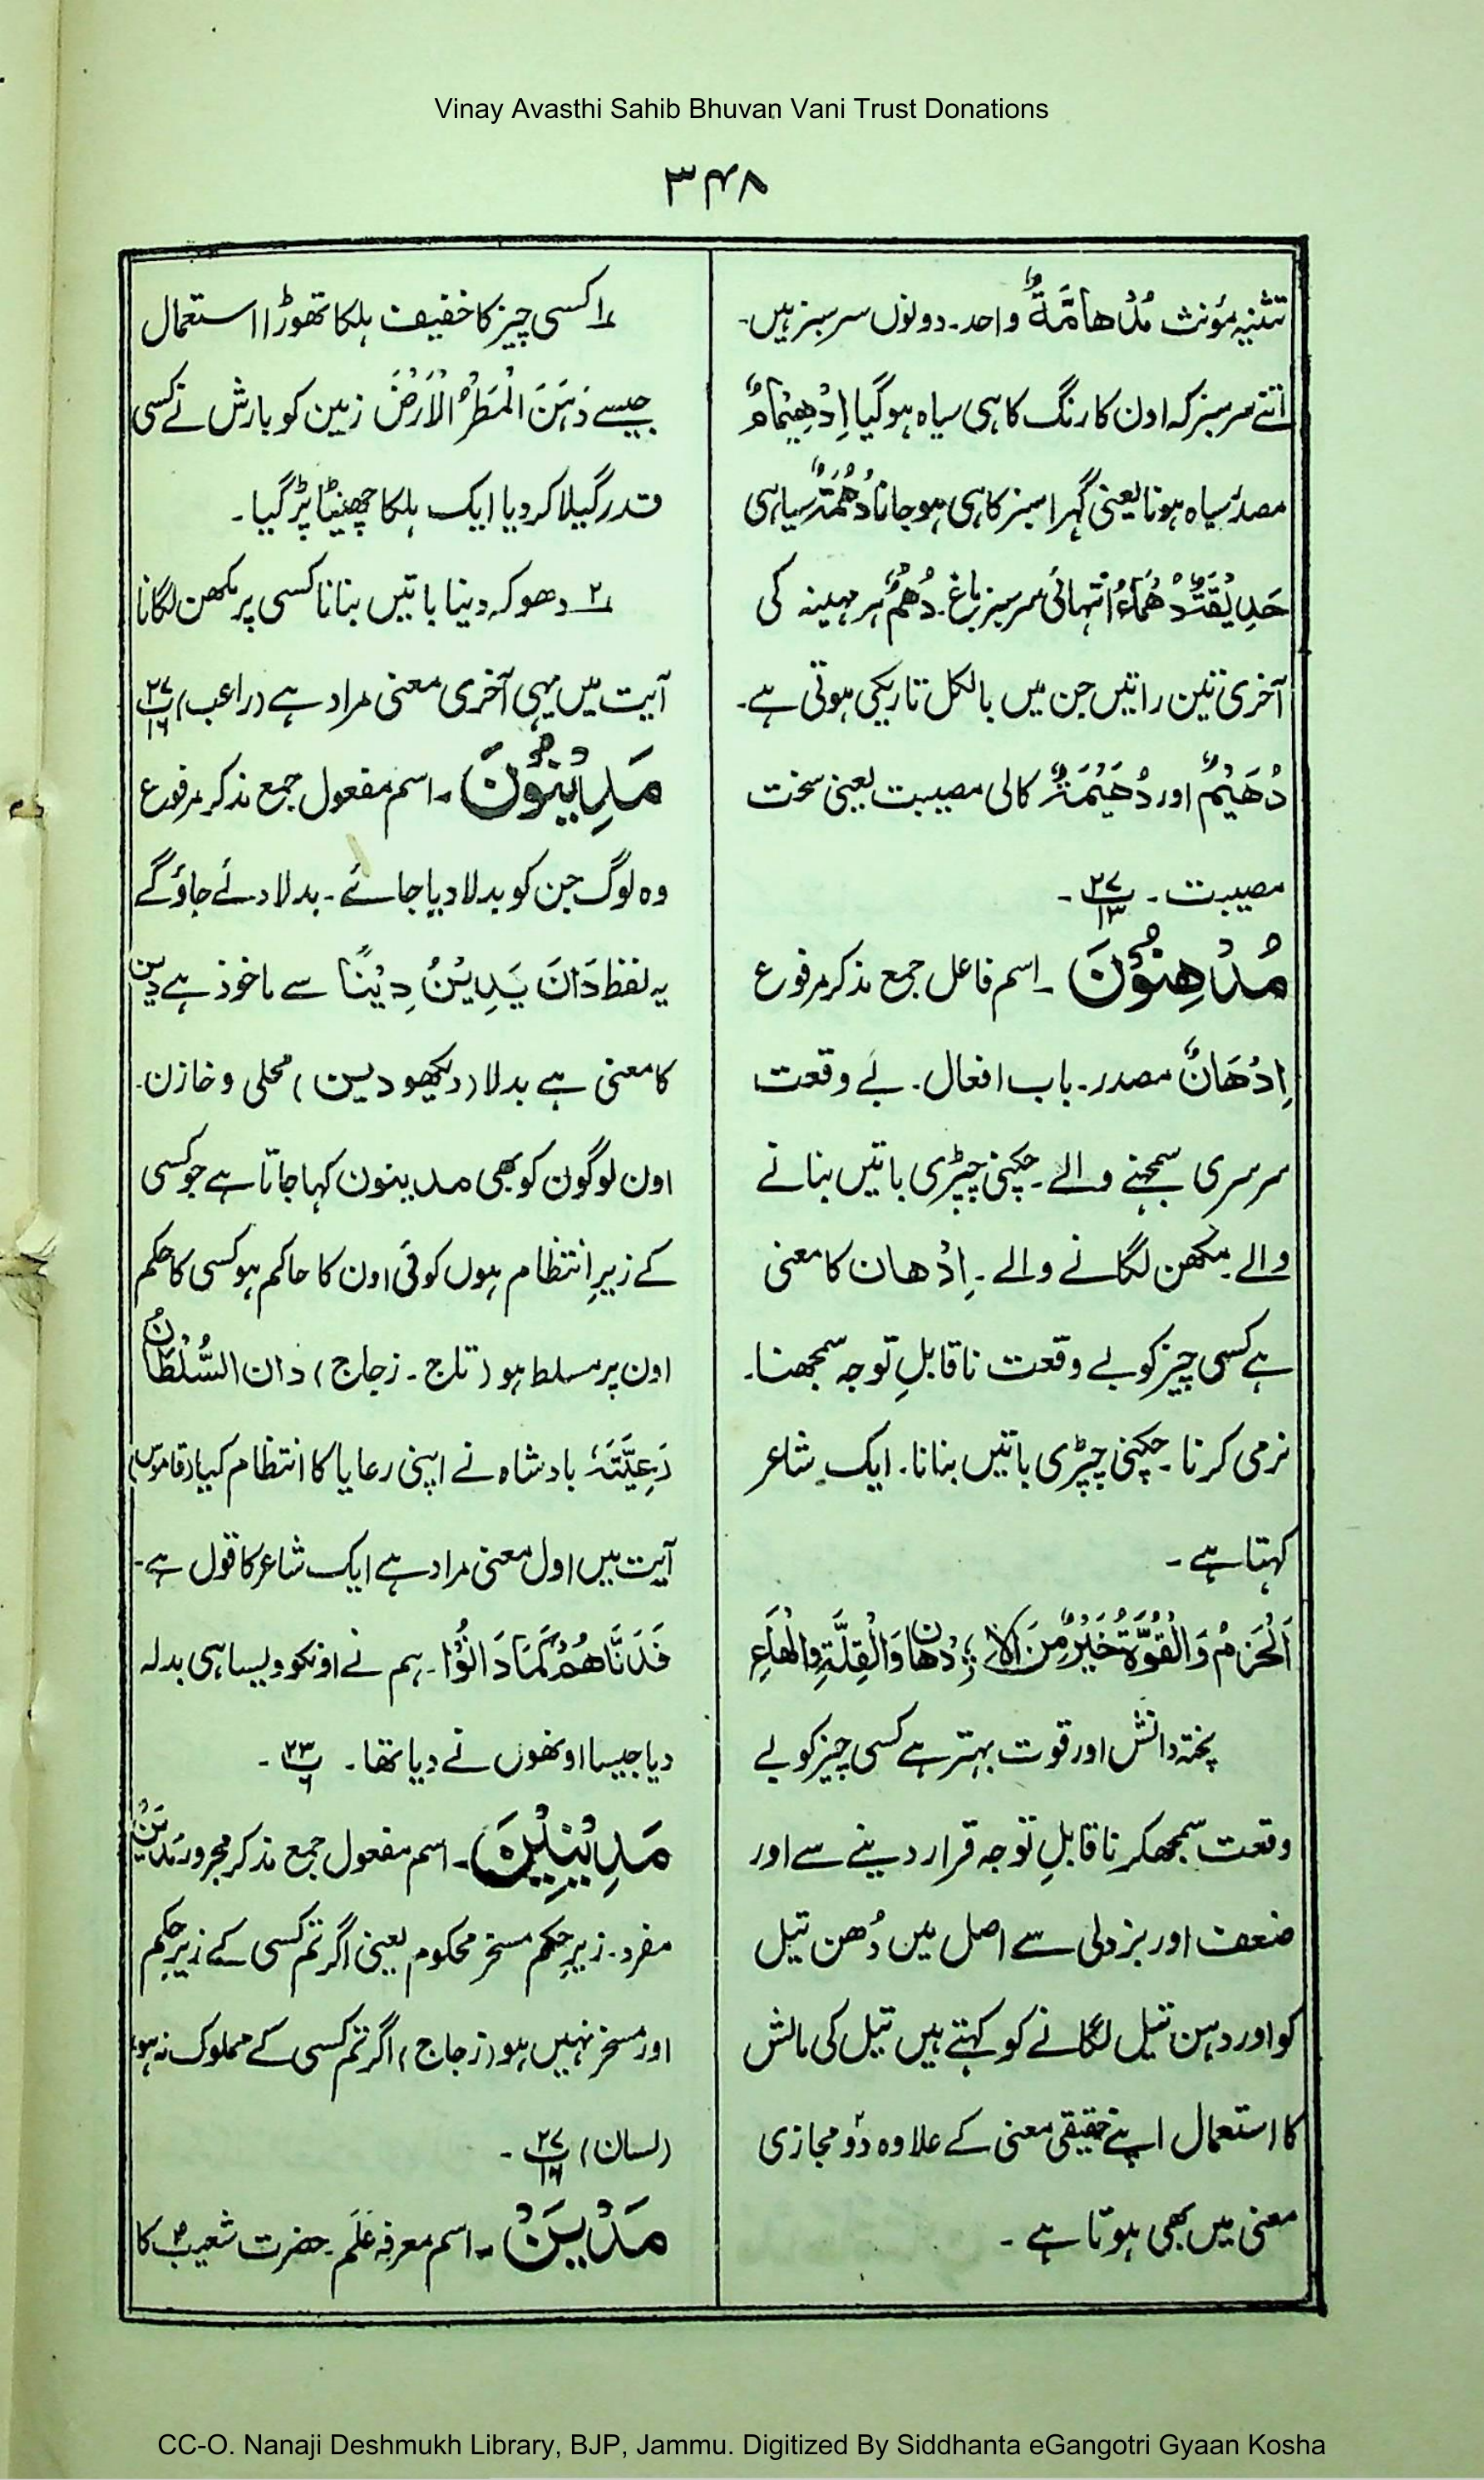 Vinay Avasthi Sahib Bhuvan Vani Trust Donations
۳۴۸
تثنیہ مؤنث مُدْهَامَّةٌ واحد۔ دونوں سرسبز ہیں۔
اتنے سرسبز کہ اون کا رنگ کاہی سیاہ ہوگیا اِدْهِيْمَامٌ
مصدر سیاہ ہونا یعنی گہرا سبز کاہی ہو جانا دُهْمَةٌ سیاہی
حَدِيْقَةٌ دُهْمَاءُ انتہائی سرسبز باغ۔ دُهْمٌ ہر مہینہ کی
آخری تین راتیں جن میں بالکل تاریکی ہوتی ہے۔
دُهَيْمٌ اور دُهَيْمَةٌ کالی مصیبت یعنی سخت
مصیبت۔ ۲۷/۱۳۔
مُدْهِنُوْنَ۔ اسم فاعل جمع مذکر مرفوع
اِدْهَانٌ مصدر۔ باب افعال۔ بے وقعت
سرسری سمجہنے والے۔ چکنی چپڑی باتیں بنانے
والے۔ مکھن لگانے والے۔ اِدْهان کا معنی
ہے کسی چیز کو بے وقعت ناقابلِ توجہ سمجھنا۔
نرمی کرنا۔ چکنی چپڑی باتیں بنانا۔ ایک شاعر
کہتا ہے۔
اَلْحَزْمُ وَالْقُوَّةُ خَيْرٌ مِنَ الْاِ ؛ دْهَانِ وَالْقِلَّةِ وَالْهَاعِ
پختہ دانش اور قوت بہتر ہے کسی چیز کو بے
وقعت سمجھکر ناقابلِ توجہ قرار دینے سے اور
ضعف اور بزدلی سے اصل میں دُهن تیل
کو اور دہن تیل لگانے کو کہتے ہیں تیل کی مالش
کا استعمال اپنے حقیقی معنی کے علاوہ دو مجازی
معنی میں بھی ہوتا ہے۔
۱ کسی چیز کا خفیف ہلکا تھوڑا استعمال
جیسے دَهَنَ الْمَطَرُ الْاَرْضَ زمین کو بارش نے کسی
قدر گیلا کر دیا ایک ہلکا چھینٹا پڑ گیا۔
۲ دھوکہ دینا باتیں بنانا کسی پر مکھن لگانا
آیت میں یہی آخری معنی مراد ہے (راغب) ۲۷/۱۶
مَدِيْنُوْنَ۔ اسم مفعول جمع مذکر مرفوع
وہ لوگ جن کو بدلا دیا جائے۔ بدلا دئے جاؤ گے
یہ لفظ دَانَ يَدِيْنُ دِيْنًا سے ماخوذ ہے دین
کا معنی ہے بدلا (دیکھو دین) محلی و خازن۔
اون لوگون کو بھی مدینون کہا جاتا ہے جو کسی
کے زیرِ انتظام ہوں کوئی اون کا حاکم ہو کسی کا حکم
اون پر مسلط ہو (تاج۔ زجاج) دان السُّلْطَانُ
رَعِيَّتَهٗ بادشاہ نے اپنی رعایا کا انتظام کیا (قاموس)
آیت میں اول معنی مراد ہے ایک شاعر کا قول ہے۔
فَدِنَّاهُمْ كَمَا دَانُوْا۔ ہم نے اونکو ویسا ہی بدلہ
دیا جیسا اونھوں نے دیا تھا۔ ۲۳/۶۔
مَدِيْنِيْنَ۔ اسم مفعول جمع مذکر مجرور مَدِيْنٌ
مفرد۔ زیرِ حکم مسخر محکوم یعنی اگر تم کسی کے زیرِ حکم
اور مسخر نہیں ہو (زجاج) اگر تم کسی کے مملوک نہ ہو،
(لسان) ۲۷/۱۶۔
مَدْيَنَ۔ اسم معرفہ عَلَم۔ حضرت شعیبؑ کا
CC-O. Nanaji Deshmukh Library, BJP, Jammu. Digitized By Siddhanta eGangotri Gyaan Kosha